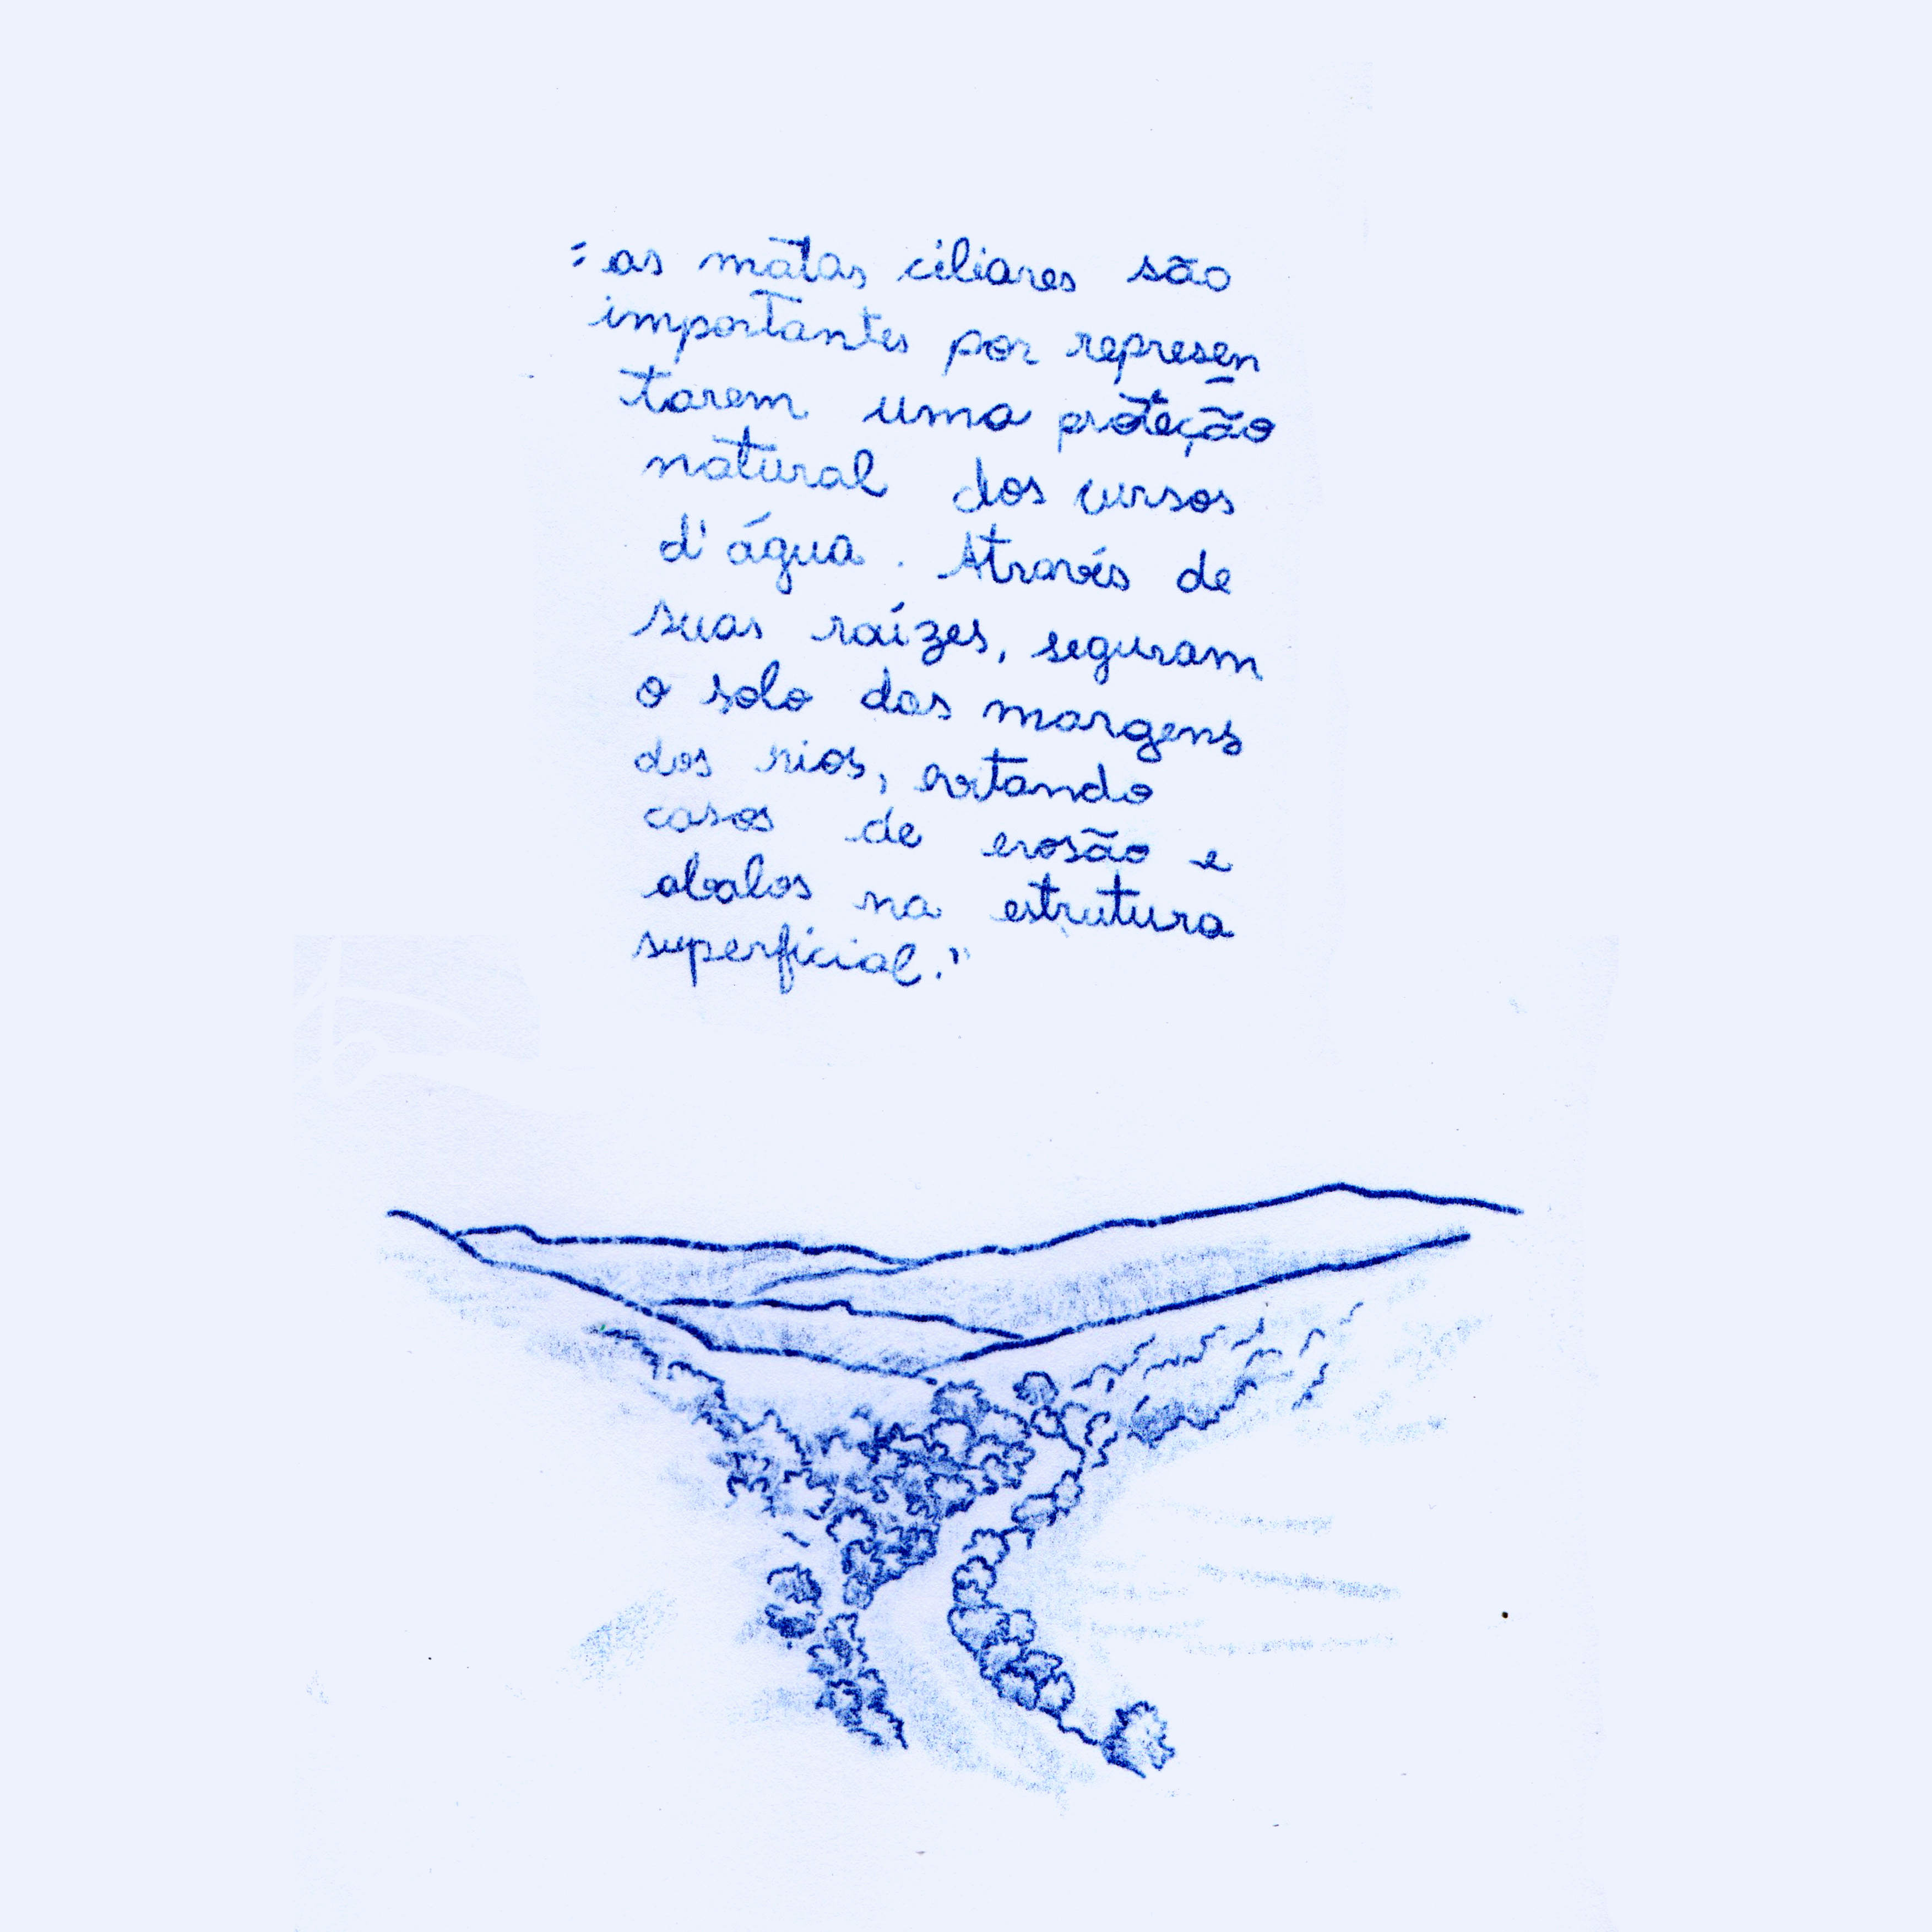 "as matas ciliares são
importantes por represen
tarem uma proteção
natural dos cursos
d'água. Através de
suas raízes, seguram
o solo das margens
dos rios, evitando
casos de erosão e
abalos na estrutura
superficial."